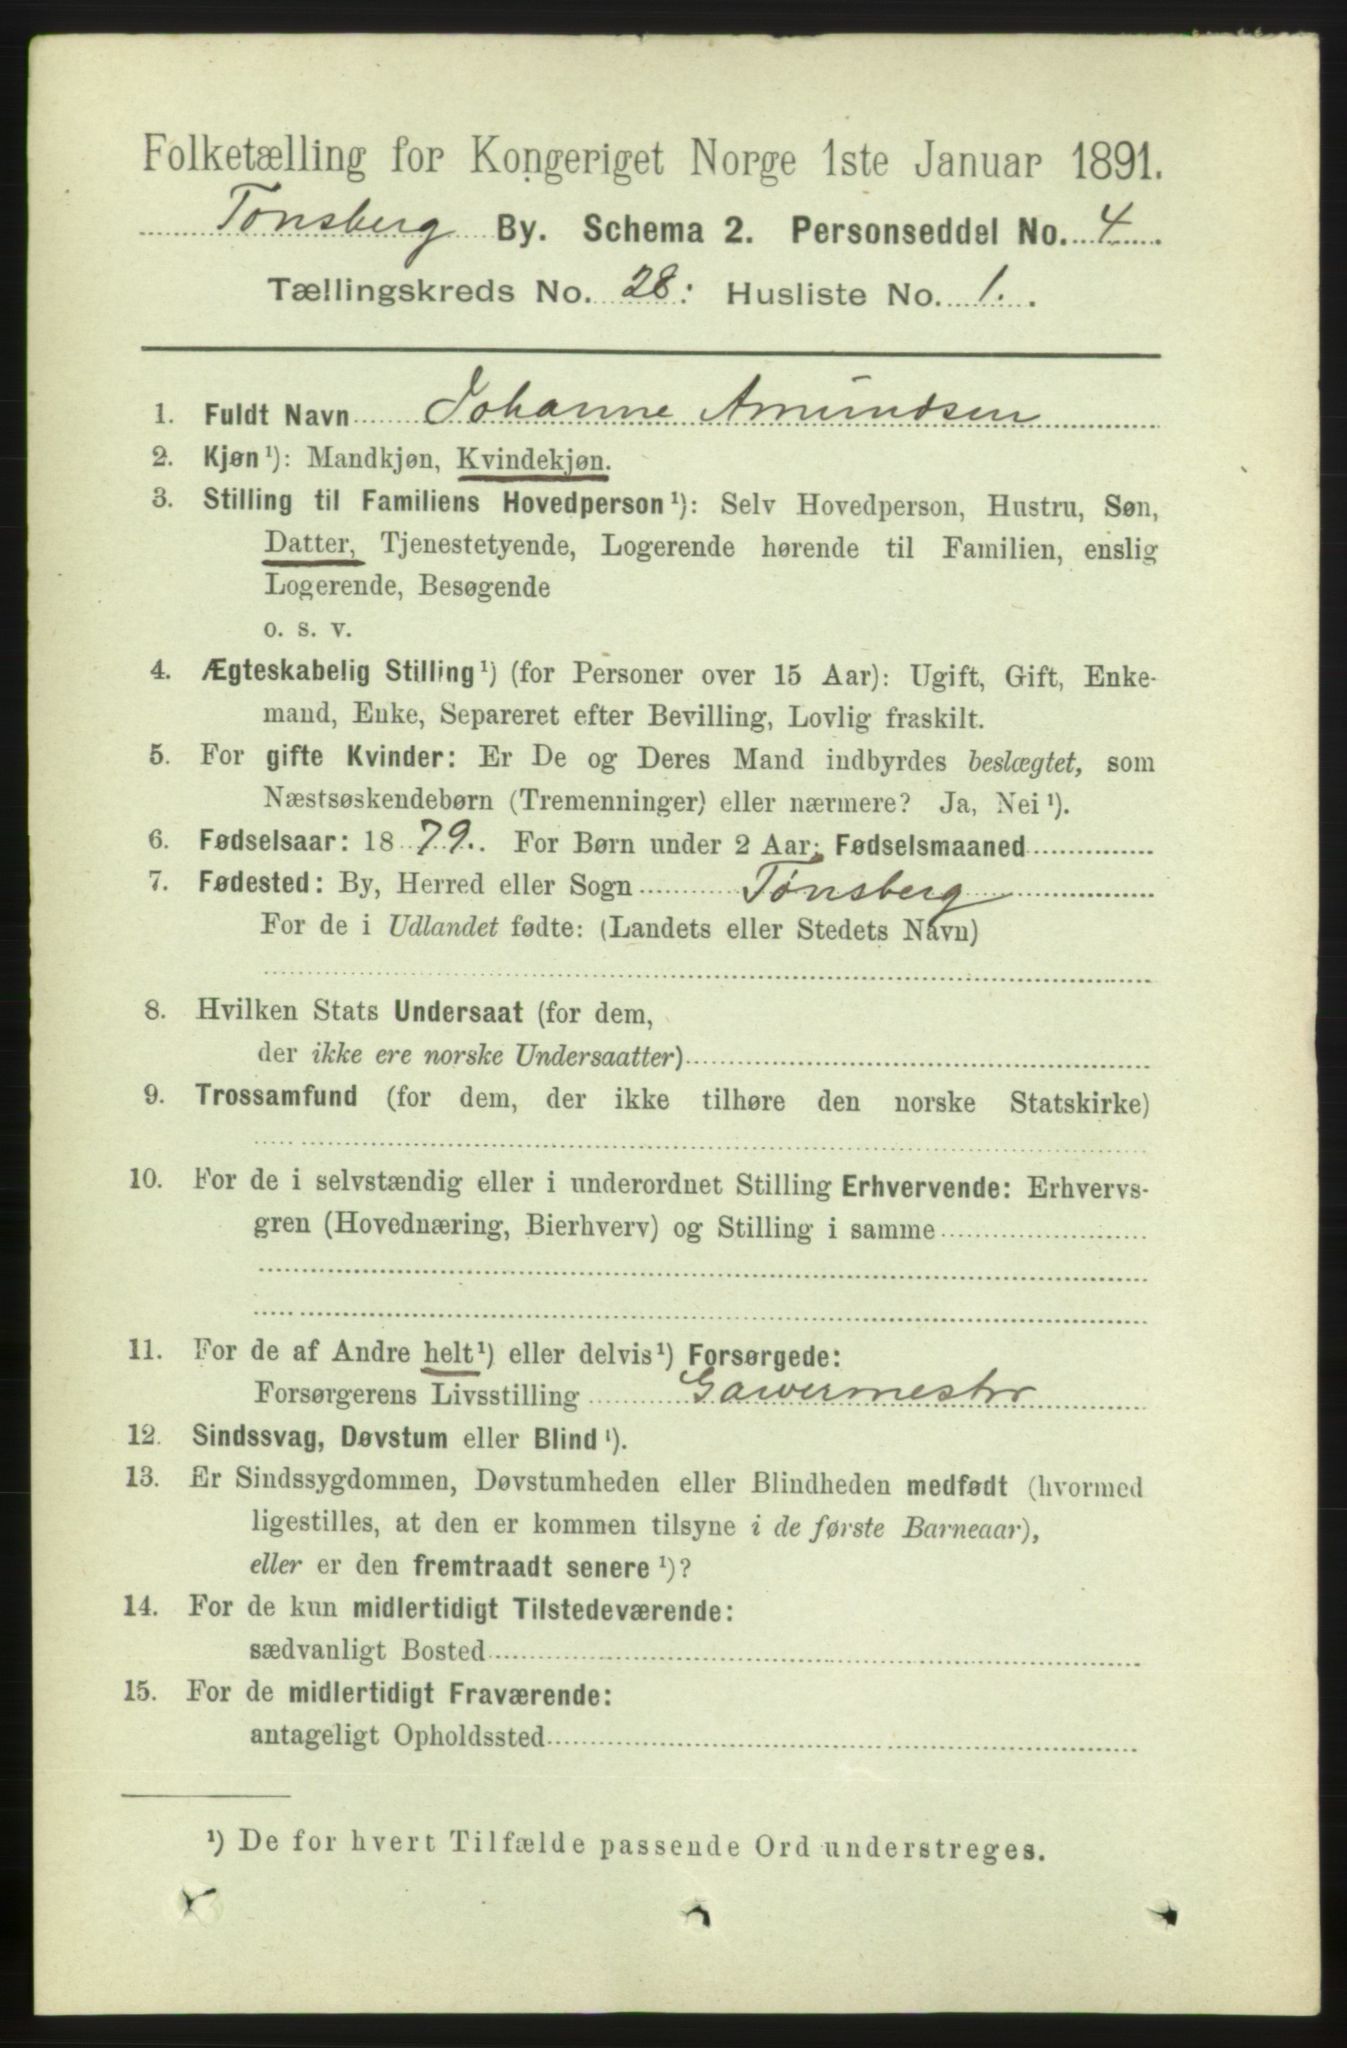 Folketælling for Kongeriget Norge 1ste Januar 1891.
Tønsberg By. Schema 2. Personseddel No. 4
Tællingskreds No. 28: Husliste No. 1.
1. Fuldt Navn Johanne Amundsen
2. Kjøn¹): Mandkjøn, Kvindekjøn.
3. Stilling til Familiens Hovedperson¹): Selv Hovedperson, Hustru, Søn,
Datter, Tjenestetyende, Logerende hørende til Familien, enslig
Logerende, Besøgende
o. s. v.
4. Ægteskabelig Stilling¹) (for Personer over 15 Aar): Ugift, Gift, Enke-
mand, Enke, Separeret efter Bevilling, Lovlig fraskilt.
5. For gifte Kvinder: Er De og Deres Mand indbyrdes beslægtet, som
Næstsøskendebørn (Tremenninger) eller nærmere? Ja, Nei¹).
6. Fødselsaar: 1879. For Børn under 2 Aar: Fødselsmaaned
7. Fødested: By, Herred eller Sogn Tønsberg
For de i Udlandet fødte: (Landets eller Stedets Navn)
8. Hvilken Stats Undersaat (for dem,
der ikke ere norske Undersaatter)
9. Trossamfund (for dem, der ikke tilhøre den norske Statskirke)
10. For de i selvstændig eller i underordnet Stilling Erhvervende: Erhvervs-
gren (Hovednæring, Bierhverv) og Stilling i samme
11. For de af Andre helt¹) eller delvis¹) Forsørgede:
Forsørgerens Livsstilling Garvermester
12. Sindssvag, Døvstum eller Blind¹).
13. Er Sindssygdommen, Døvstumheden eller Blindheden medfødt (hvormed
ligestilles, at den er kommen tilsyne i de første Barneaar),
eller er den fremtraadt senere¹)?
14. For de kun midlertidigt Tilstedeværende:
sædvanligt Bosted
15. For de midlertidigt Fraværende:
antageligt Opholdssted
¹) De for hvert Tilfælde passende Ord understreges.